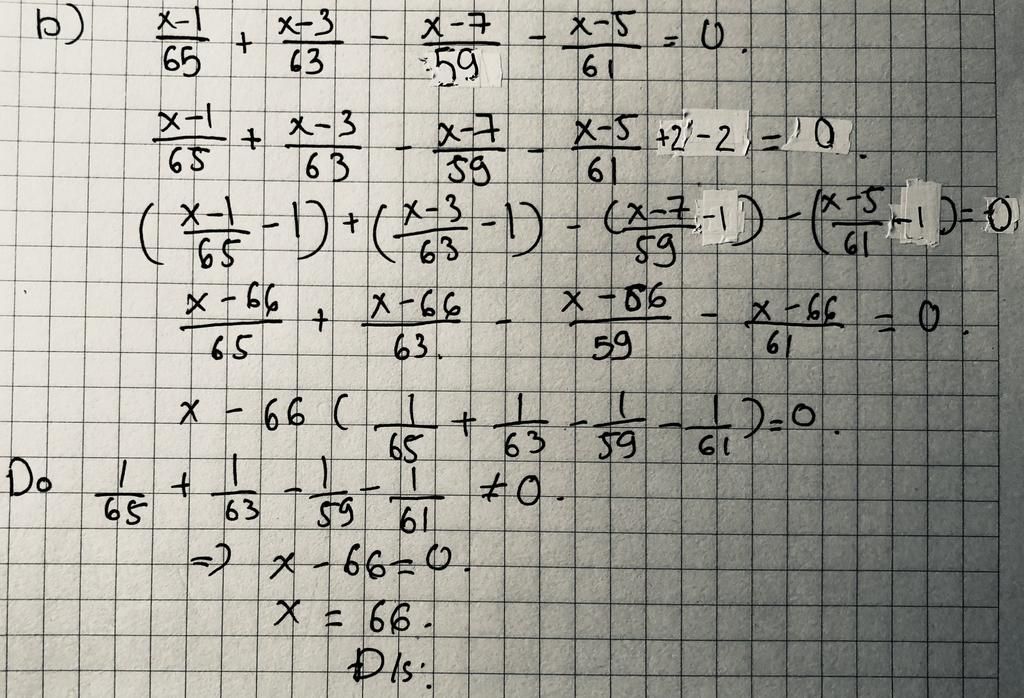 b) (x-1)/65 + (x-3)/63 - (x-7)/59 - (x-5)/61 = 0.
(x-1)/65 + (x-3)/63 - (x-7)/59 - (x-5)/61 +2 -2 = 0.
((x-1)/65 - 1) + ((x-3)/63 - 1) - ((x-7)/59 - 1) - ((x-5)/61 - 1) = 0.
(x-66)/65 + (x-66)/63. - (x-66)/59 - (x-66)/61 = 0.
x - 66 ( 1/65 + 1/63 - 1/59 - 1/61 ) = 0.
Do 1/65 + 1/63 - 1/59 - 1/61 ≠ 0.
=> x - 66 = 0.
x = 66.
Đ/s: